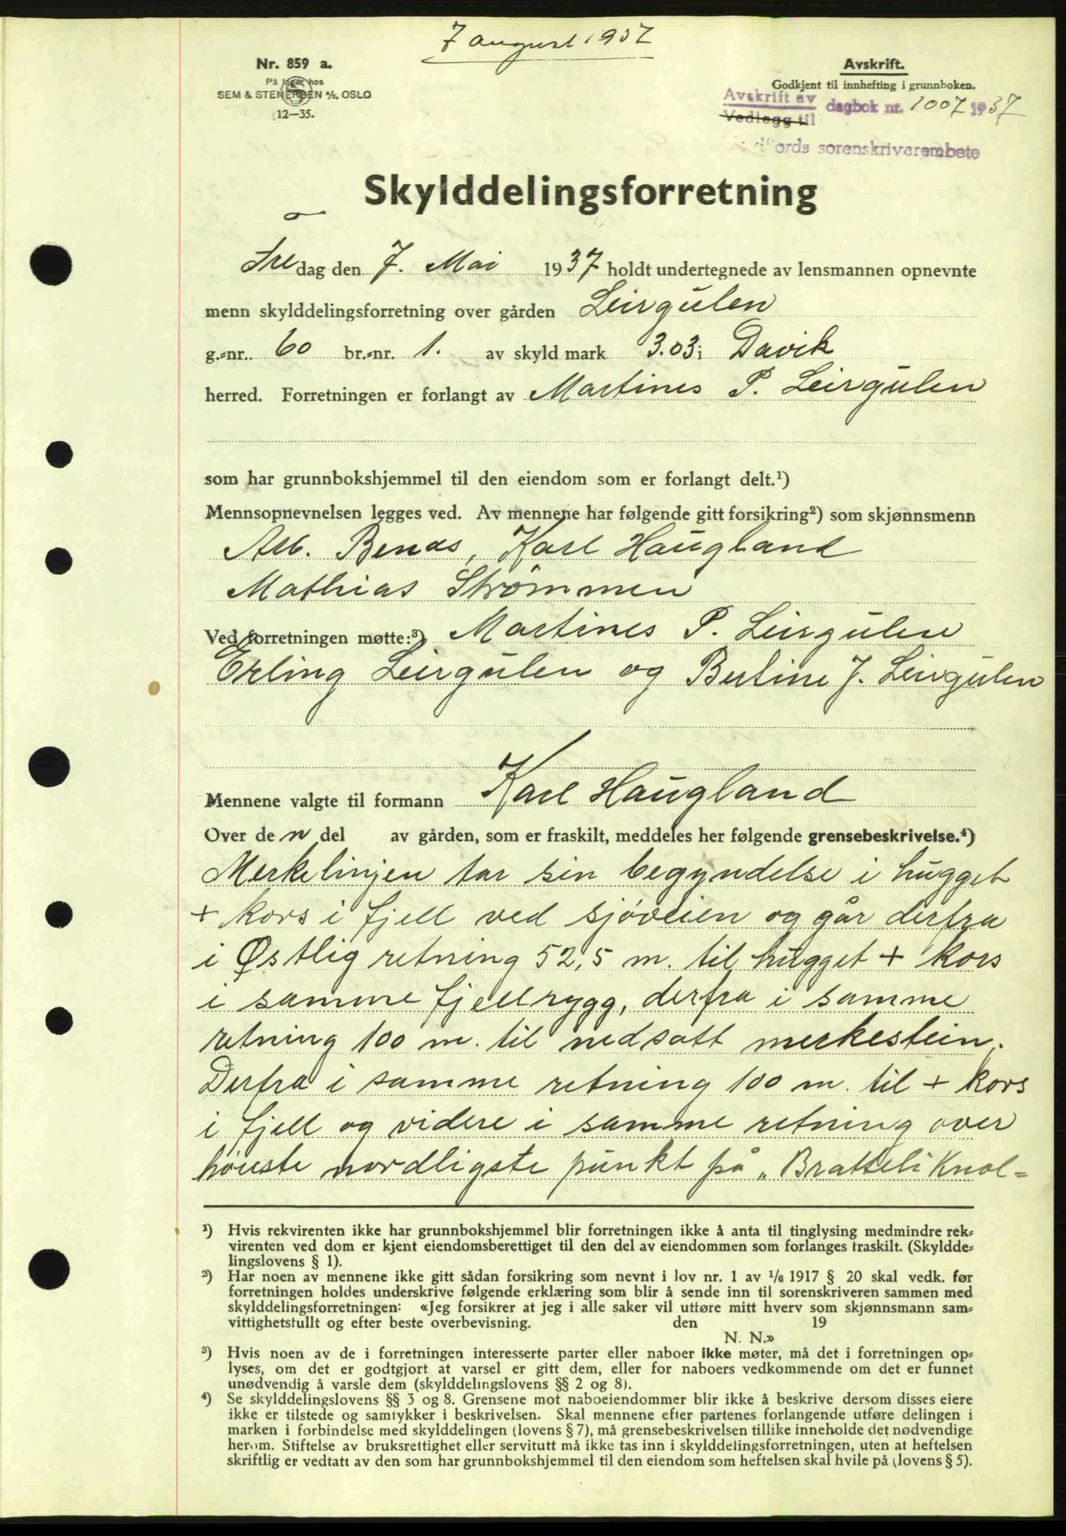 7 august 1937
Nr. 859 a.
På lager hos
SEM & STENERSEN A/S, OSLO
12—35.
Avskrift.
Godkjent til innhefting i grunnboken.
Avskrift av
Vedlegg til
dagbok nr. 1007 1937
fjords sorenskriverembete
Skylddelingsforretning
Fredag den 7. Mai 1937 holdt undertegnede av lensmannen opnevnte
menn skylddelingsforretning over gården Leirgulen
g.-nr. 60 br.-nr. 1. av skyld mark 3.03 i Davik
herred. Forretningen er forlangt av Martines P. Leirgulen
som har grunnbokshjemmel til den eiendom som er forlangt delt.¹)
Mennsopnevnelsen legges ved. Av mennene har følgende gitt forsikring²) som skjønnsmenn
Alb. Benas, Karl Haugland
Mathias Strømmen
Ved forretningen møtte:³) Martines P. Leirgulen
Erling Leirgulen og Bertine J. Leirgulen
Mennene valgte til formann Karl Haugland
Over den del av gården, som er fraskilt, meddeles her følgende grensebeskrivelse.⁴)
Merkelinjen tar sin begyndelse i hugget
+ kors i fjell ved sjøveien og går derfra
i Østlig retning 52,5 m. til hugget + kors
i samme fjellrygg, derfra i samme
retning 100 m. til nedsatt merkestein.
Derfra i samme retning 100 m. til + kors
i fjell og videre i samme retning over
høieste nordligste punkt på „Bratteli Knol=
¹) Hvis rekvirenten ikke har grunnbokshjemmel blir forretningen ikke å anta til tinglysing medmindre rek-
virenten ved dom er kjent eiendomsberettiget til den del av eiendommen som forlanges fraskilt. (Skyldde-
lingslovens § 1).
²) Har noen av mennene ikke gitt sådan forsikring som nevnt i lov nr. 1 av 1/6 1917 § 20 skal vedk. før
forretningen holdes underskrive følgende erklæring som blir å sende inn til sorenskriveren sammen med
skylddelingsforretningen: «Jeg forsikrer at jeg i alle saker vil utføre mitt hverv som skjønnsmann sam-
vittighetsfullt og efter beste overbevisning. den 19
N. N.»
³) Hvis noen av de i forretningen interesserte parter eller naboer ikke møter, må det i forretningen op-
lyses, om det er godtgjort at varsel er gitt dem, eller for naboers vedkommende om det er funnet
unødvendig å varsle dem (skylddelingslovens §§ 2 og 8).
⁴) Se skylddelingslovens §§ 3 og 8. Grensene mot naboeiendommer blir ikke å beskrive dersom disses eiere
ikke er tilstede og samtykker i beskrivelsen. Skal mennene efter partenes forlangende utføre delingen i
marken i forbindelse med skylddelingen (lovens § 7), må grensebeskrivelsen tillike inneholde det nødvendige
herom. Stiftelse av bruksrettighet eller servitutt må ikke tas inn i skylddelingsforretningen, uten at heftelsen
skriftlig er vedtatt av den som har grunnbokshjemmel til den eiendom som heftelsen skal hvile på (lovens § 5).